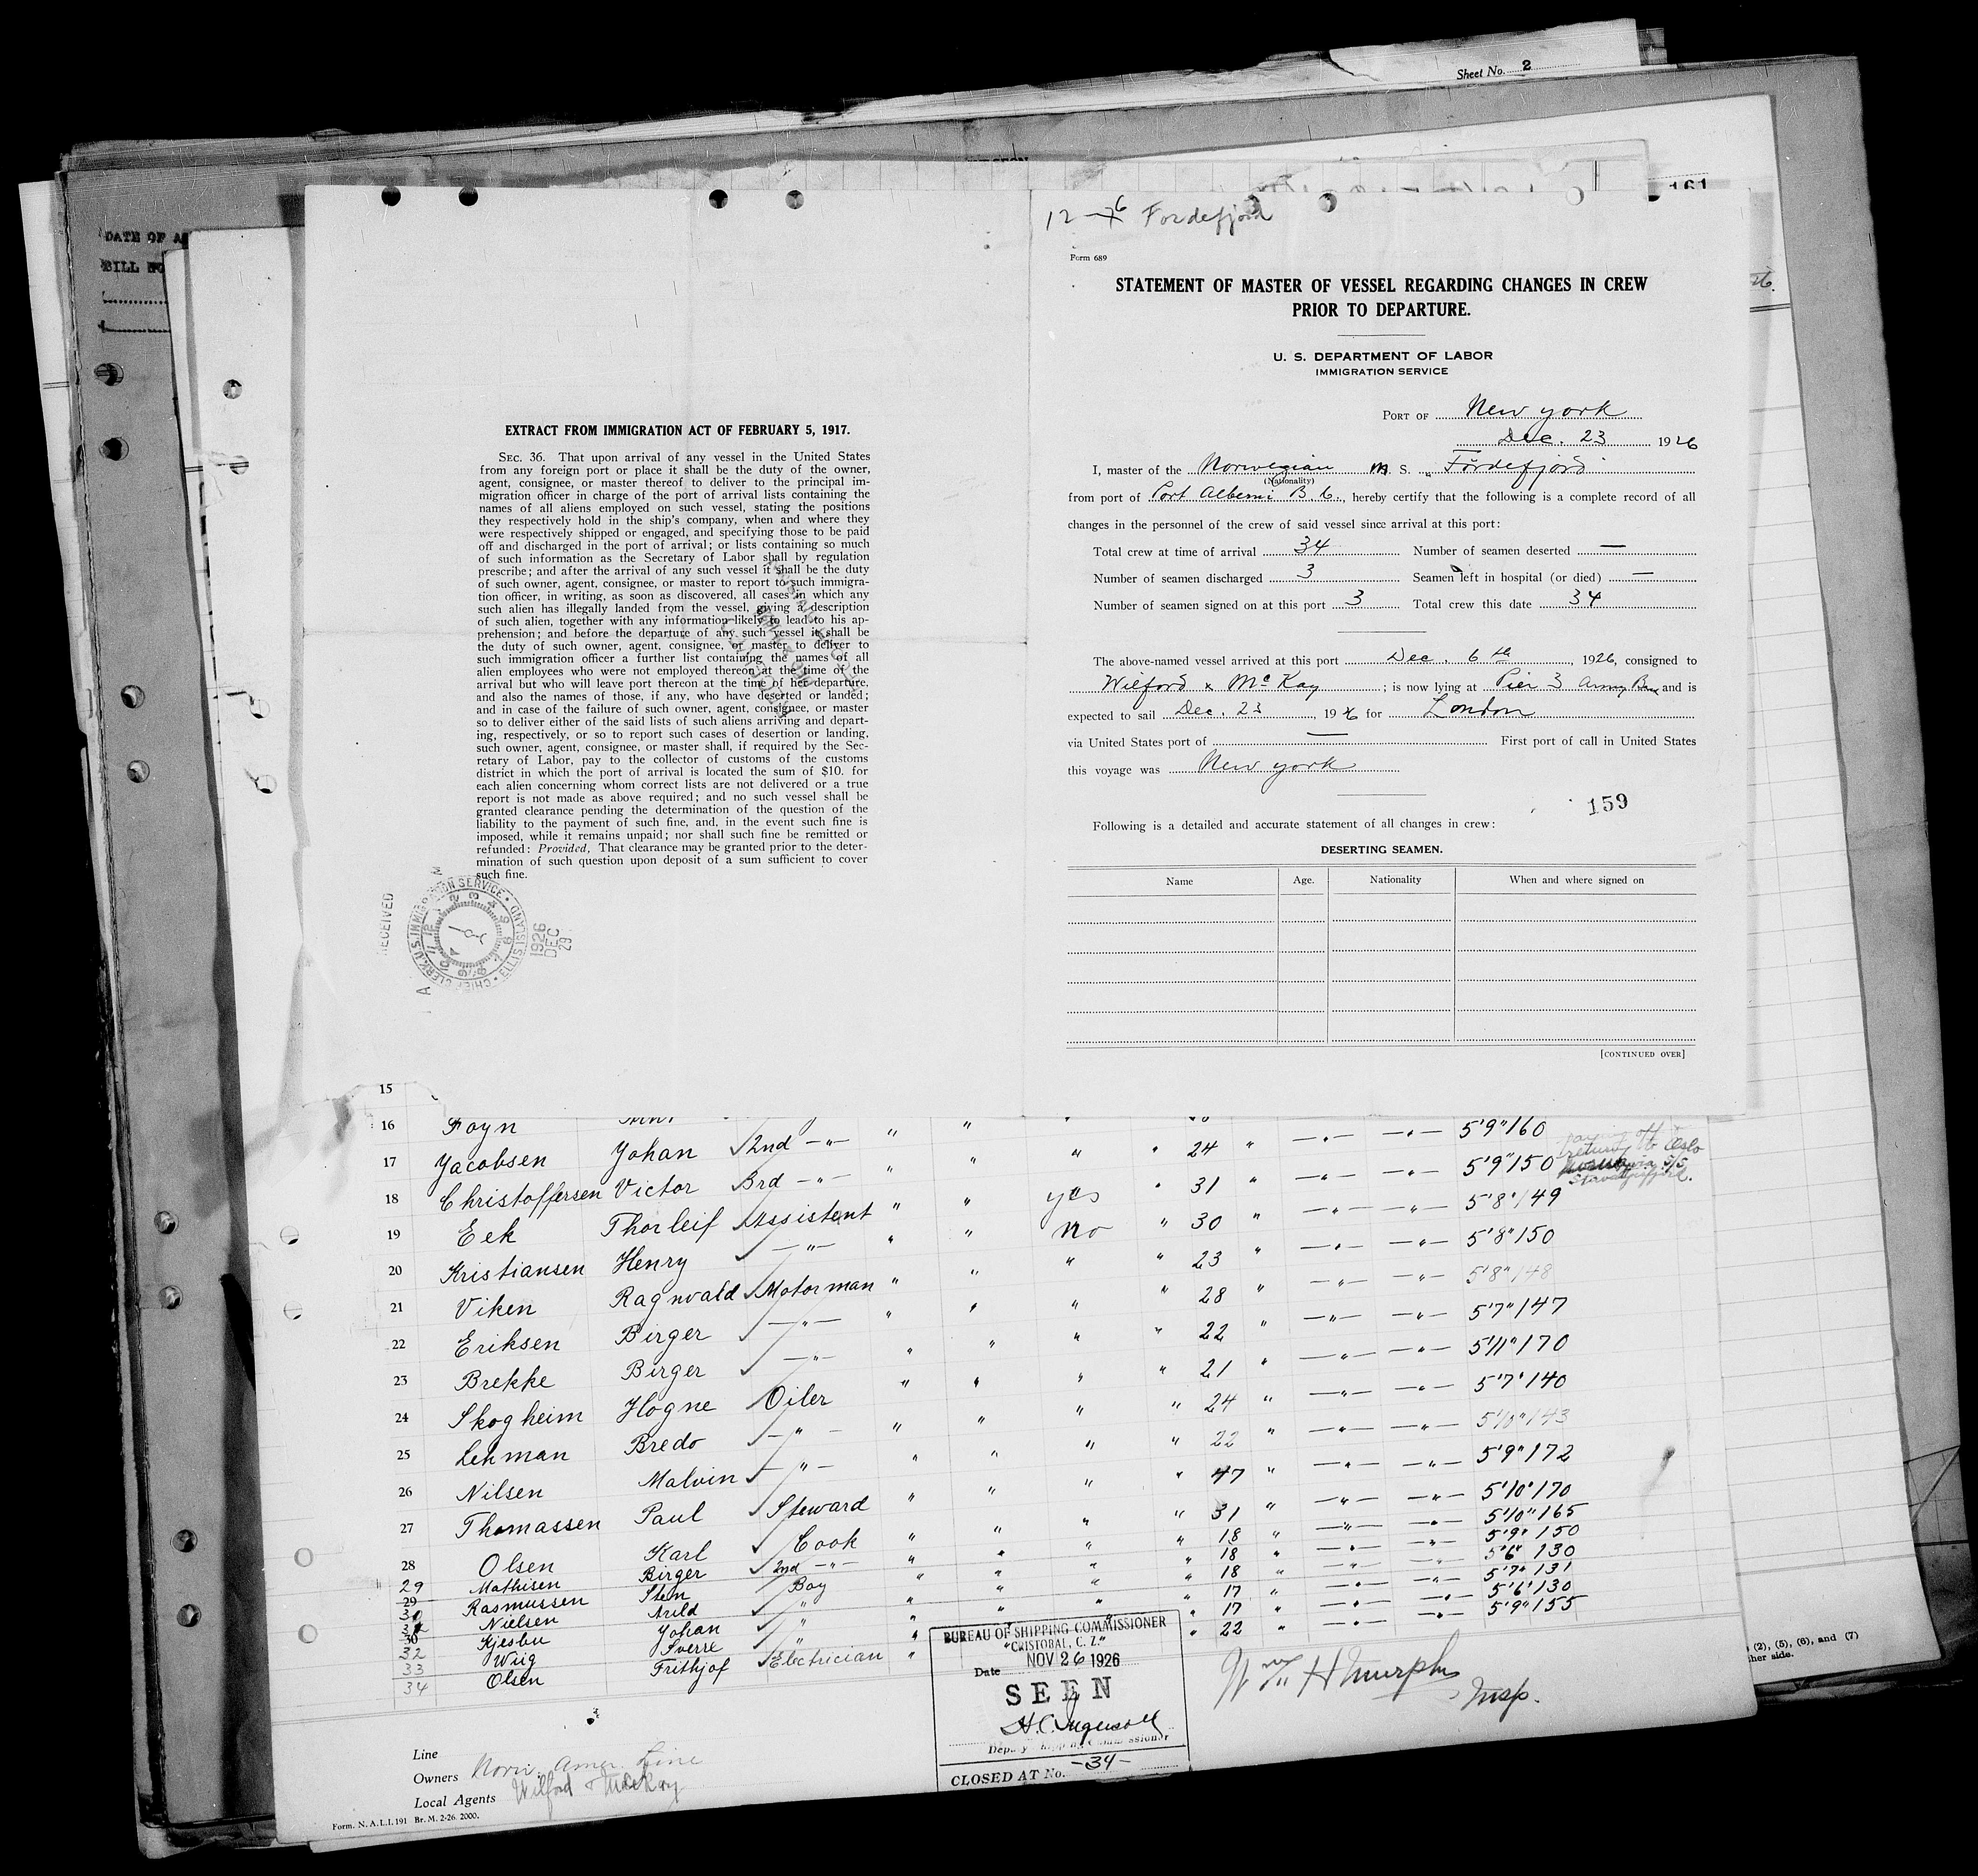 Sheet No. 2
161
DATE OF
BILL
12-6 Fordefjord
Form 689
STATEMENT OF MASTER OF VESSEL REGARDING CHANGES IN CREW
PRIOR TO DEPARTURE.
U. S. DEPARTMENT OF LABOR
IMMIGRATION SERVICE
PORT OF New york
Dec. 23 1926
I, master of the Norwegian M S. „ Fördefjord
(Nationality)
from port of Port Alberni B. C., hereby certify that the following is a complete record of all
changes in the personnel of the crew of said vessel since arrival at this port:
Total crew at time of arrival 34 Number of seamen deserted —
Number of seamen discharged 3 Seamen left in hospital (or died) —
Number of seamen signed on at this port 3 Total crew this date 34
The above-named vessel arrived at this port Dec. 6th, 1926, consigned to
Wilford & McKay ; is now lying at Pier 3 Army Base and is
expected to sail Dec. 23, 1926 for London
via United States port of — First port of call in United States
this voyage was New york
159
Following is a detailed and accurate statement of all changes in crew:
DESERTING SEAMEN.
Name Age. Nationality When and where signed on
[CONTINUED OVER]
EXTRACT FROM IMMIGRATION ACT OF FEBRUARY 5, 1917.
SEC. 36. That upon arrival of any vessel in the United States
from any foreign port or place it shall be the duty of the owner,
agent, consignee, or master thereof to deliver to the principal im-
migration officer in charge of the port of arrival lists containing the
names of all aliens employed on such vessel, stating the positions
they respectively hold in the ship's company, when and where they
were respectively shipped or engaged, and specifying those to be paid
off and discharged in the port of arrival; or lists containing so much
of such information as the Secretary of Labor shall by regulation
prescribe; and after the arrival of any such vessel it shall be the duty
of such owner, agent, consignee, or master to report to such immigra-
tion officer, in writing, as soon as discovered, all cases in which any
such alien has illegally landed from the vessel, giving a description
of such alien, together with any information likely to lead to his ap-
prehension; and before the departure of any such vessel it shall be
the duty of such owner, agent, consignee, or master to deliver to
such immigration officer a further list containing the names of all
alien employees who were not employed thereon at the time of the
arrival but who will leave port thereon at the time of her departure,
and also the names of those, if any, who have deserted or landed;
and in case of the failure of such owner, agent, consignee, or master
so to deliver either of the said lists of such aliens arriving and depart-
ing, respectively, or so to report such cases of desertion or landing,
such owner, agent, consignee, or master shall, if required by the Sec-
retary of Labor, pay to the collector of customs of the customs
district in which the port of arrival is located the sum of $10. for
each alien concerning whom correct lists are not delivered or a true
report is not made as above required; and no such vessel shall be
granted clearance pending the determination of the question of the
liability to the payment of such fine, and, in the event such fine is
imposed, while it remains unpaid; nor shall such fine be remitted or
refunded: Provided, That clearance may be granted prior to the deter-
mination of such question upon deposit of a sum sufficient to cover
such fine.
RECEIVED
CHIEF CLERK, U.S. IMMIGRATION SERVICE • ELLIS ISLAND
1926 DEC 29
15
16 Foyn " " 5'9" 160
17 Jacobsen Johan 2nd —"— " " " " 24 " —"— —"— 5'9" 150
18 Christoffersen Victor 3rd —"— " " yes " 31 " —"— —"— 5'8" 149
19 Eek Thorleif Assistent " " no " 30 " —"— —"— 5'8" 150
20 Kristiansen Henry —"— " " " " 23 " —"— —"— 5'8" 148
21 Viken Ragnvald Motorman " " " " 28 " —"— —"— 5'7" 147
22 Eriksen Birger —"— " " " " 22 " —"— —"— 5'11" 170
23 Brekke Birger —"— " " " " 21 " —"— —"— 5'7" 140
24 Skogheim Högne Oiler " " " " 24 " —"— —"— 5'10" 143
25 Lehman Bredo —"— " " " " 22 " —"— —"— 5'9" 172
26 Nilsen Malvin —"— " " " " 47 " —"— —"— 5'10" 170
27 Thomassen Paul Steward " " " " 31 " —"— —"— 5'10" 165
28 Olsen Karl Cook " " " " 18 " —"— —"— 5'9" 150
29 Mathisen Birger 2nd —"— " " " " 18 " —"— —"— 5'6" 130
30 Rasmussen Sten Boy " " " " 18 " —"— —"— 5'7" 131
Nielsen Arild " " " 17 " —"— —"— 5'6" 130
32 Kjesbu Johan " " 17 " —"— —"— 5'9" 155
33 Wiig Sverre " " 22 " —"— —"—
34 Olsen Frithjof Electrician "
return to Oslo
via S/S
Stavangerfjord.
BUREAU OF SHIPPING COMMISSIONER
"CRISTOBAL, C. Z."
Date NOV 26 1926
SEEN
H.C. Ingersoll
Deputy Shipping Commissioner
CLOSED AT No. -34-
Wm H Murphy
Insp.
Line
Owners Norw. Amer. Line
Local Agents Wilford & McKay
Form. N. A. L. I. 191 Br. M. 2-26. 2000.
(2), (5), (6), and (7)
her side.